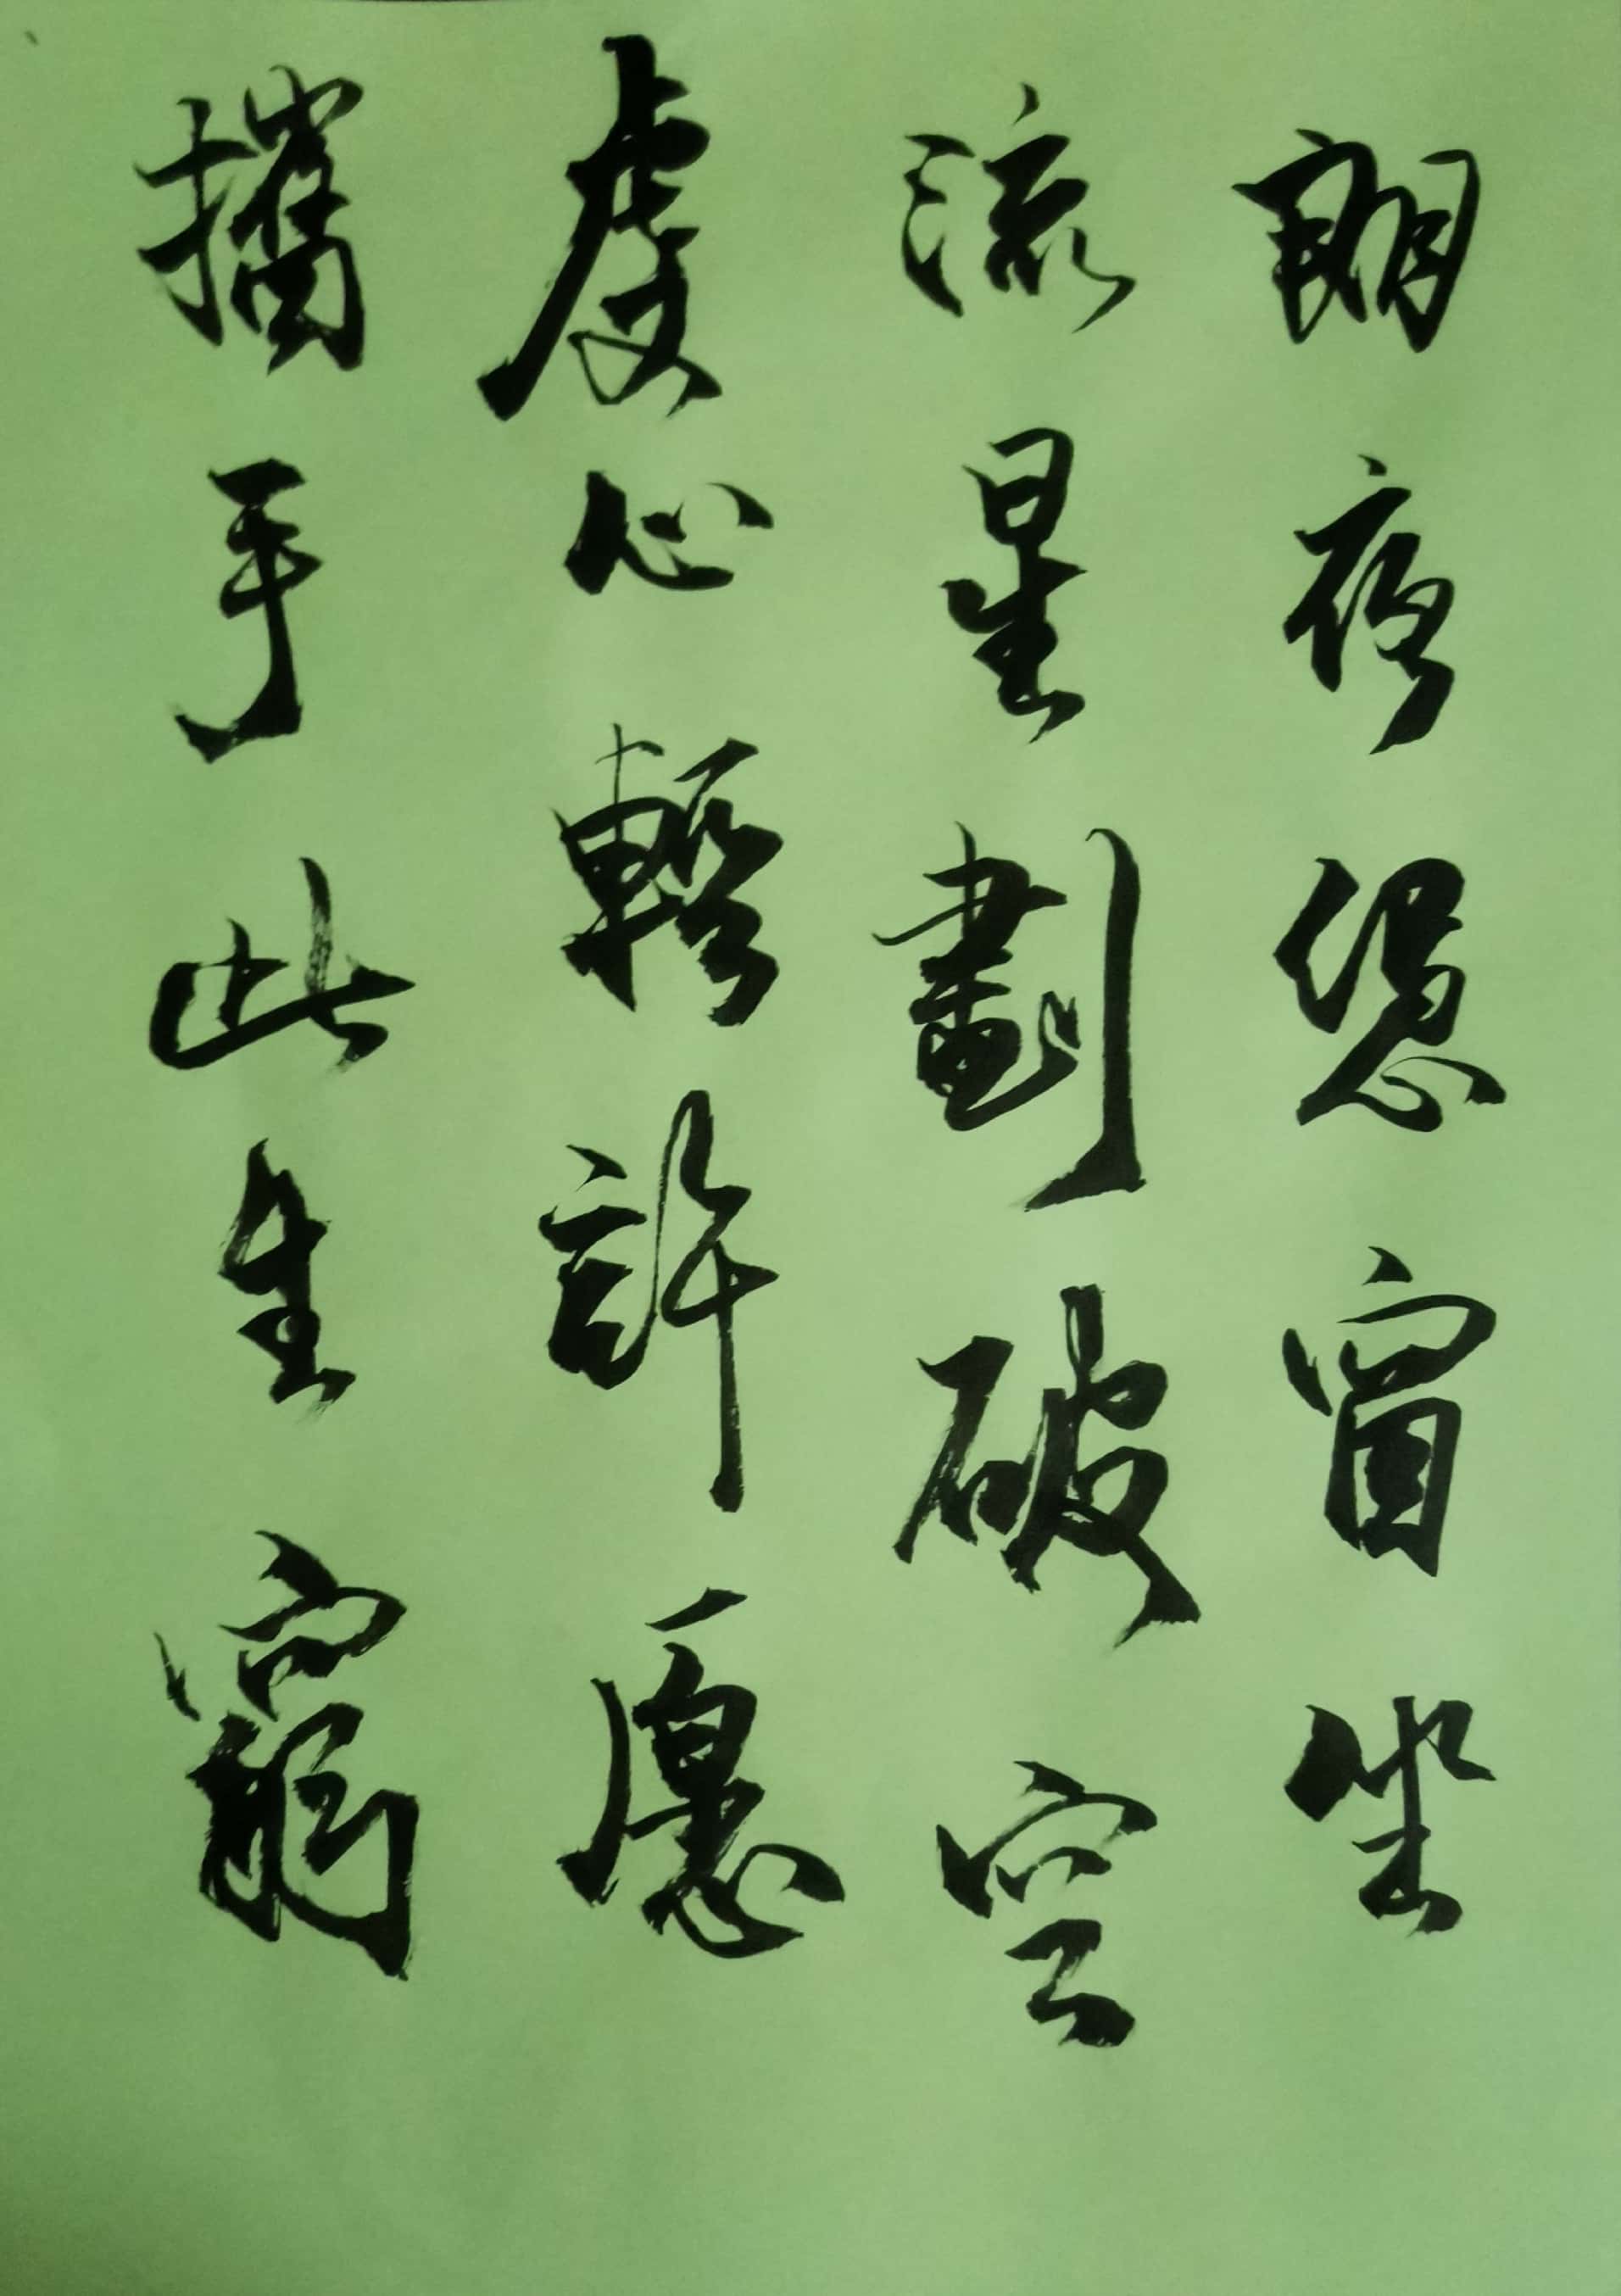 朗夜憑窗坐
流星劃破空
虔心輕許愿
攜手此生窮